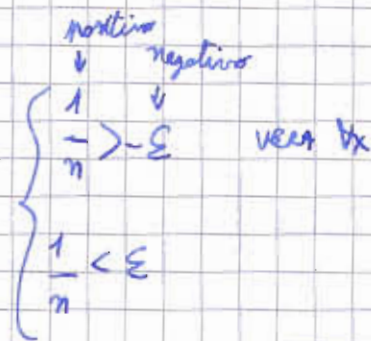 positivo
negativo
1/n > -ε VERA ∀x
1/n < ε